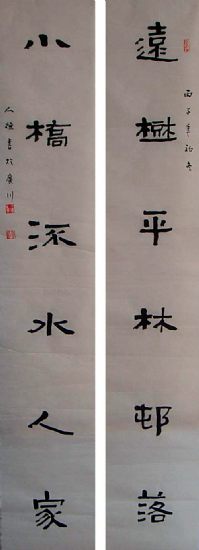 遠平林邨落
丙子年初冬
小橋流水人家
人書於廣川